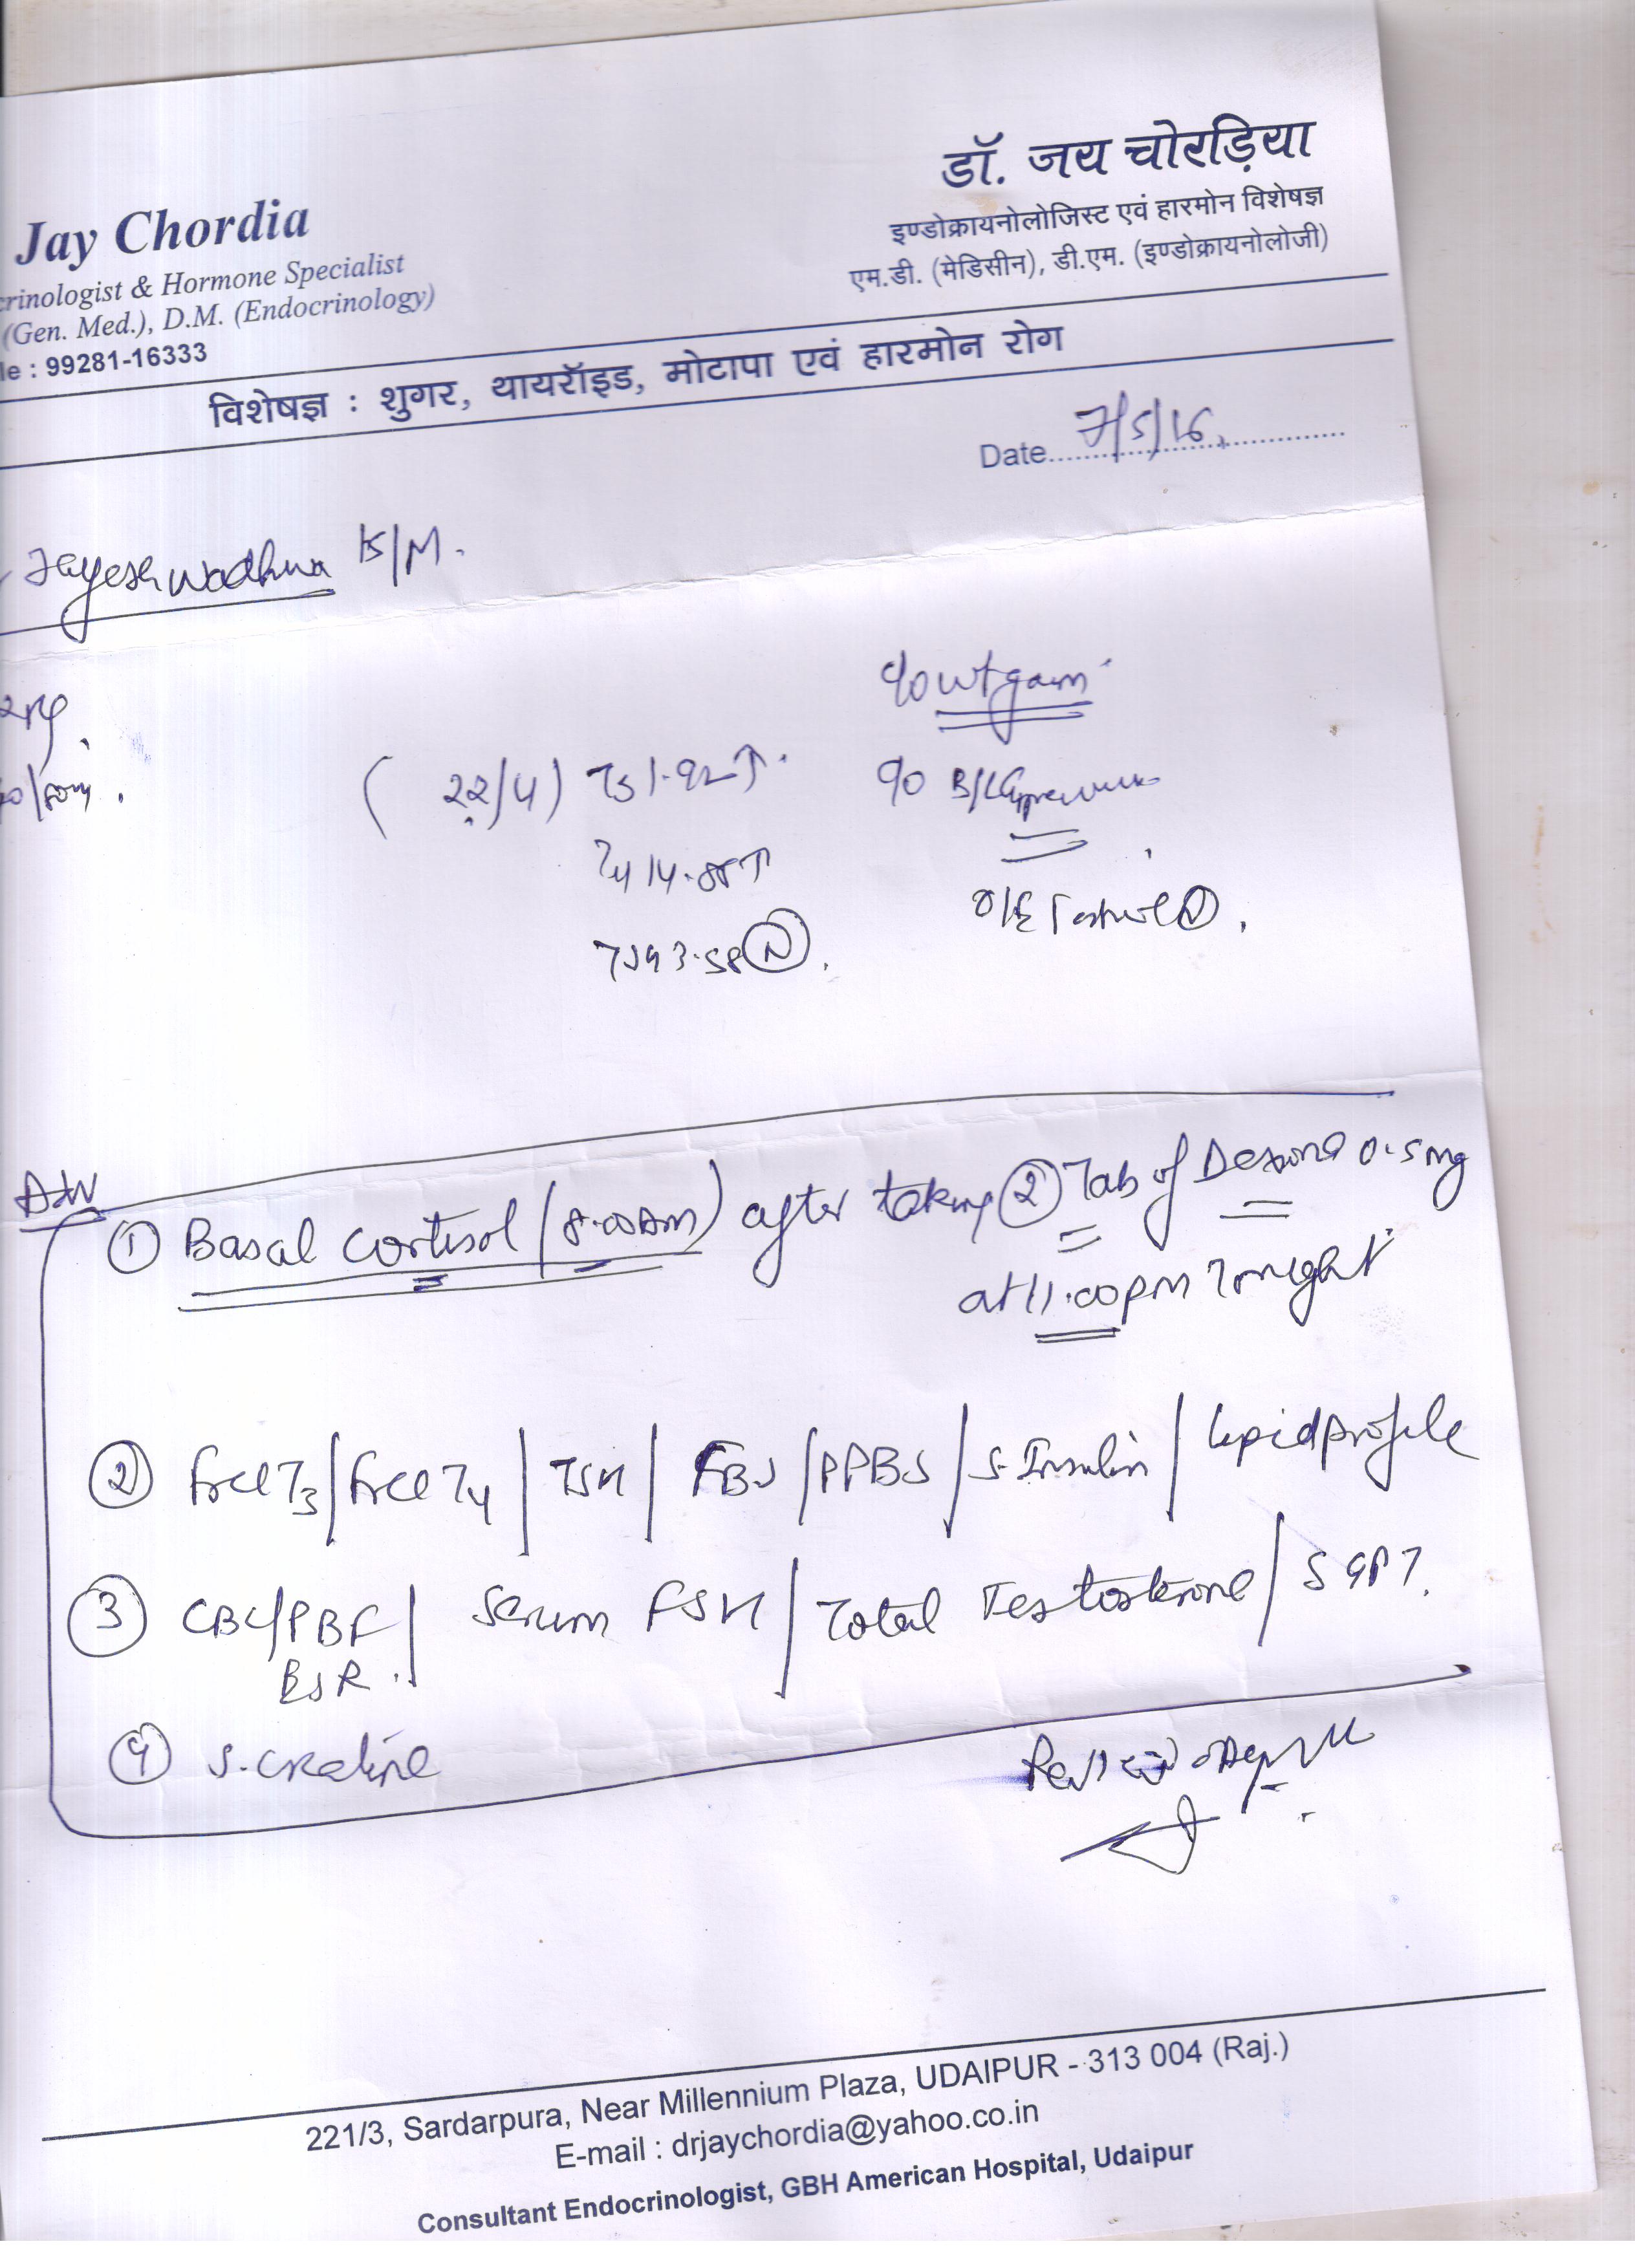 Jay Chordia
डॉ. जय चोरड़िया
crinologist & Hormone Specialist
इण्डोक्रायनोलोजिस्ट एवं हारमोन विशेषज्ञ
(Gen. Med.), D.M. (Endocrinology)
एम.डी. (मेडिसीन), डी.एम. (इण्डोक्रायनोलोजी)
le : 99281-16333
विशेषज्ञ : शुगर, थायरॉइड, मोटापा एवं हारमोन रोग
Date 7/5/16
Jayesh Wadhwa 15/M.
c/o wt gain
(22/4) T3 1.92↑
c/o B/L
T4 14.88↑
O/E Ⓝ.
TSH 3.58 Ⓝ.
Adv
① Basal Cortisol (8.00AM) after taking ② Tab of Dexona 0.5mg
at 11.00PM Tonight
② Free T3/Free T4/TSH/FBS/PPBS/S. Insulin/Lipid profile
③ CBC/PBF/Serum FSH/Total Testosterone/SGPT.
ESR.
④ S. Creatine
Review
221/3, Sardarpura, Near Millennium Plaza, UDAIPUR - 313 004 (Raj.)
E-mail : drjaychordia@yahoo.co.in
Consultant Endocrinologist, GBH American Hospital, Udaipur